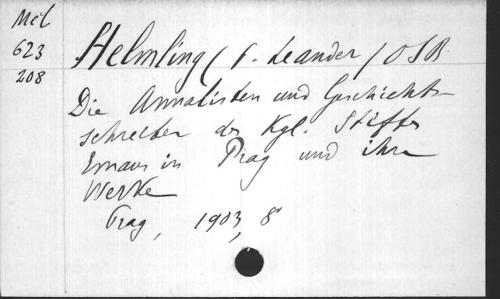 Mcl
623
208
Helmling (P. Leander) OSB.
Die Annalisten und Geschicht-
schreiber des Kgl. Stiftes
Emaus in Prag und ihre
Werke
Prag, 1903, 8°